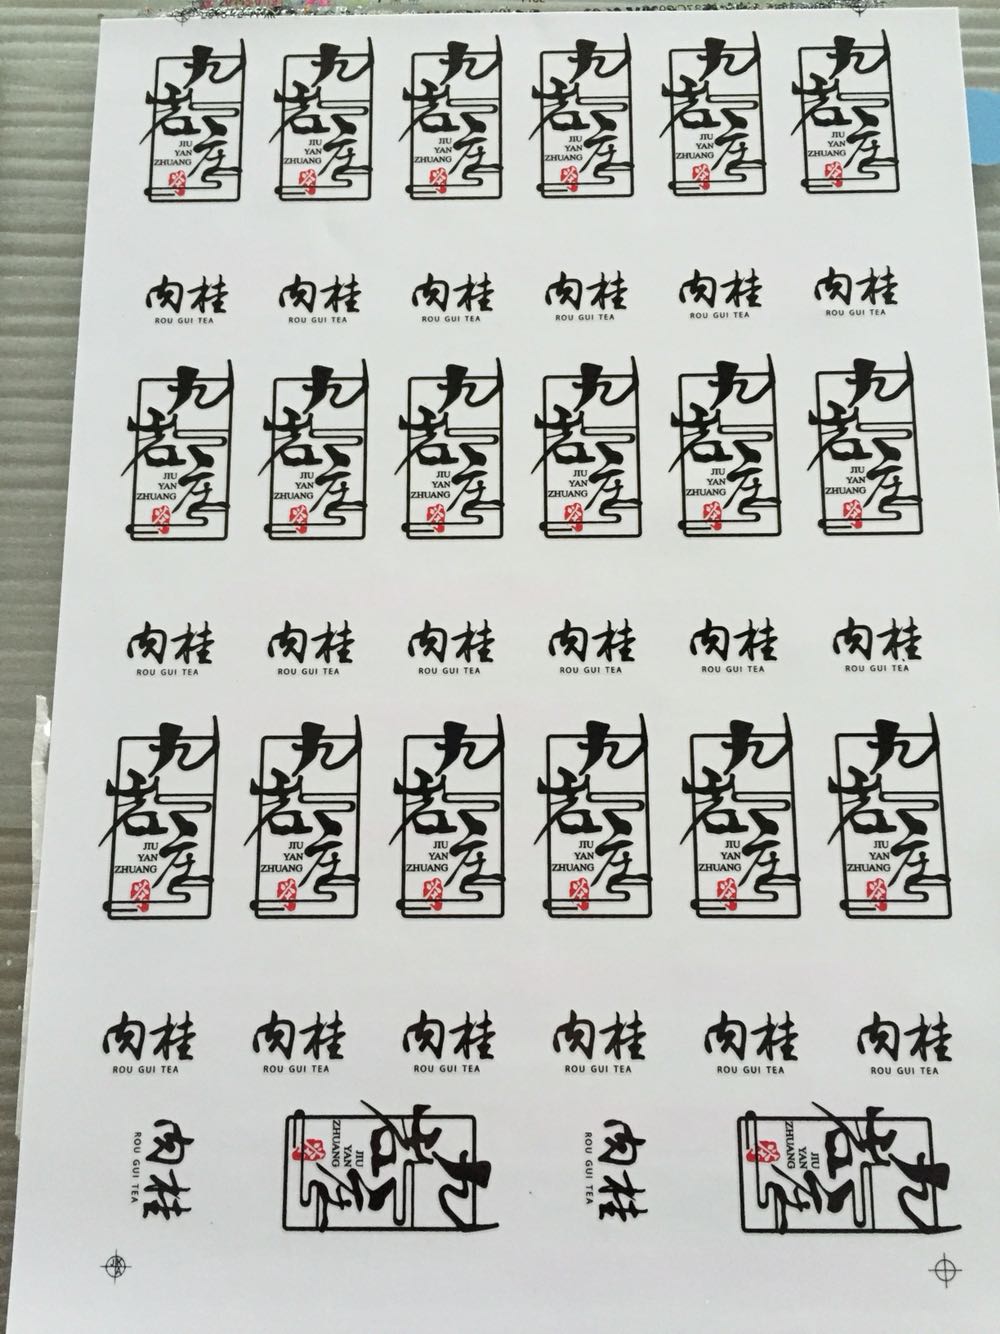 九岩庄 九岩庄 九岩庄 九岩庄 九岩庄 九岩庄
JIU JIU JIU JIU JIU JIU
YAN YAN YAN YAN YAN YAN
ZHUANG ZHUANG ZHUANG ZHUANG ZHUANG ZHUANG
肉桂 肉桂 肉桂 肉桂 肉桂 肉桂
ROU GUI TEA ROU GUI TEA ROU GUI TEA ROU GUI TEA ROU GUI TEA ROU GUI TEA
九岩庄 九岩庄 九岩庄 九岩庄 九岩庄 九岩庄
JIU JIU JIU JIU JIU JIU
YAN YAN YAN YAN YAN YAN
ZHUANG ZHUANG ZHUANG ZHUANG ZHUANG ZHUANG
肉桂 肉桂 肉桂 肉桂 肉桂 肉桂
ROU GUI TEA ROU GUI TEA ROU GUI TEA ROU GUI TEA ROU GUI TEA ROU GUI TEA
九岩庄 九岩庄 九岩庄 九岩庄 九岩庄 九岩庄
JIU JIU JIU JIU JIU JIU
YAN YAN YAN YAN YAN YAN
ZHUANG ZHUANG ZHUANG ZHUANG ZHUANG ZHUANG
肉桂 肉桂 肉桂 肉桂 肉桂 肉桂
ROU GUI TEA ROU GUI TEA ROU GUI TEA ROU GUI TEA ROU GUI TEA ROU GUI TEA
肉桂
ROU GUI TEA
九岩庄
JIU
YAN
ZHUANG
肉桂
ROU GUI TEA
九岩庄
JIU
YAN
ZHUANG